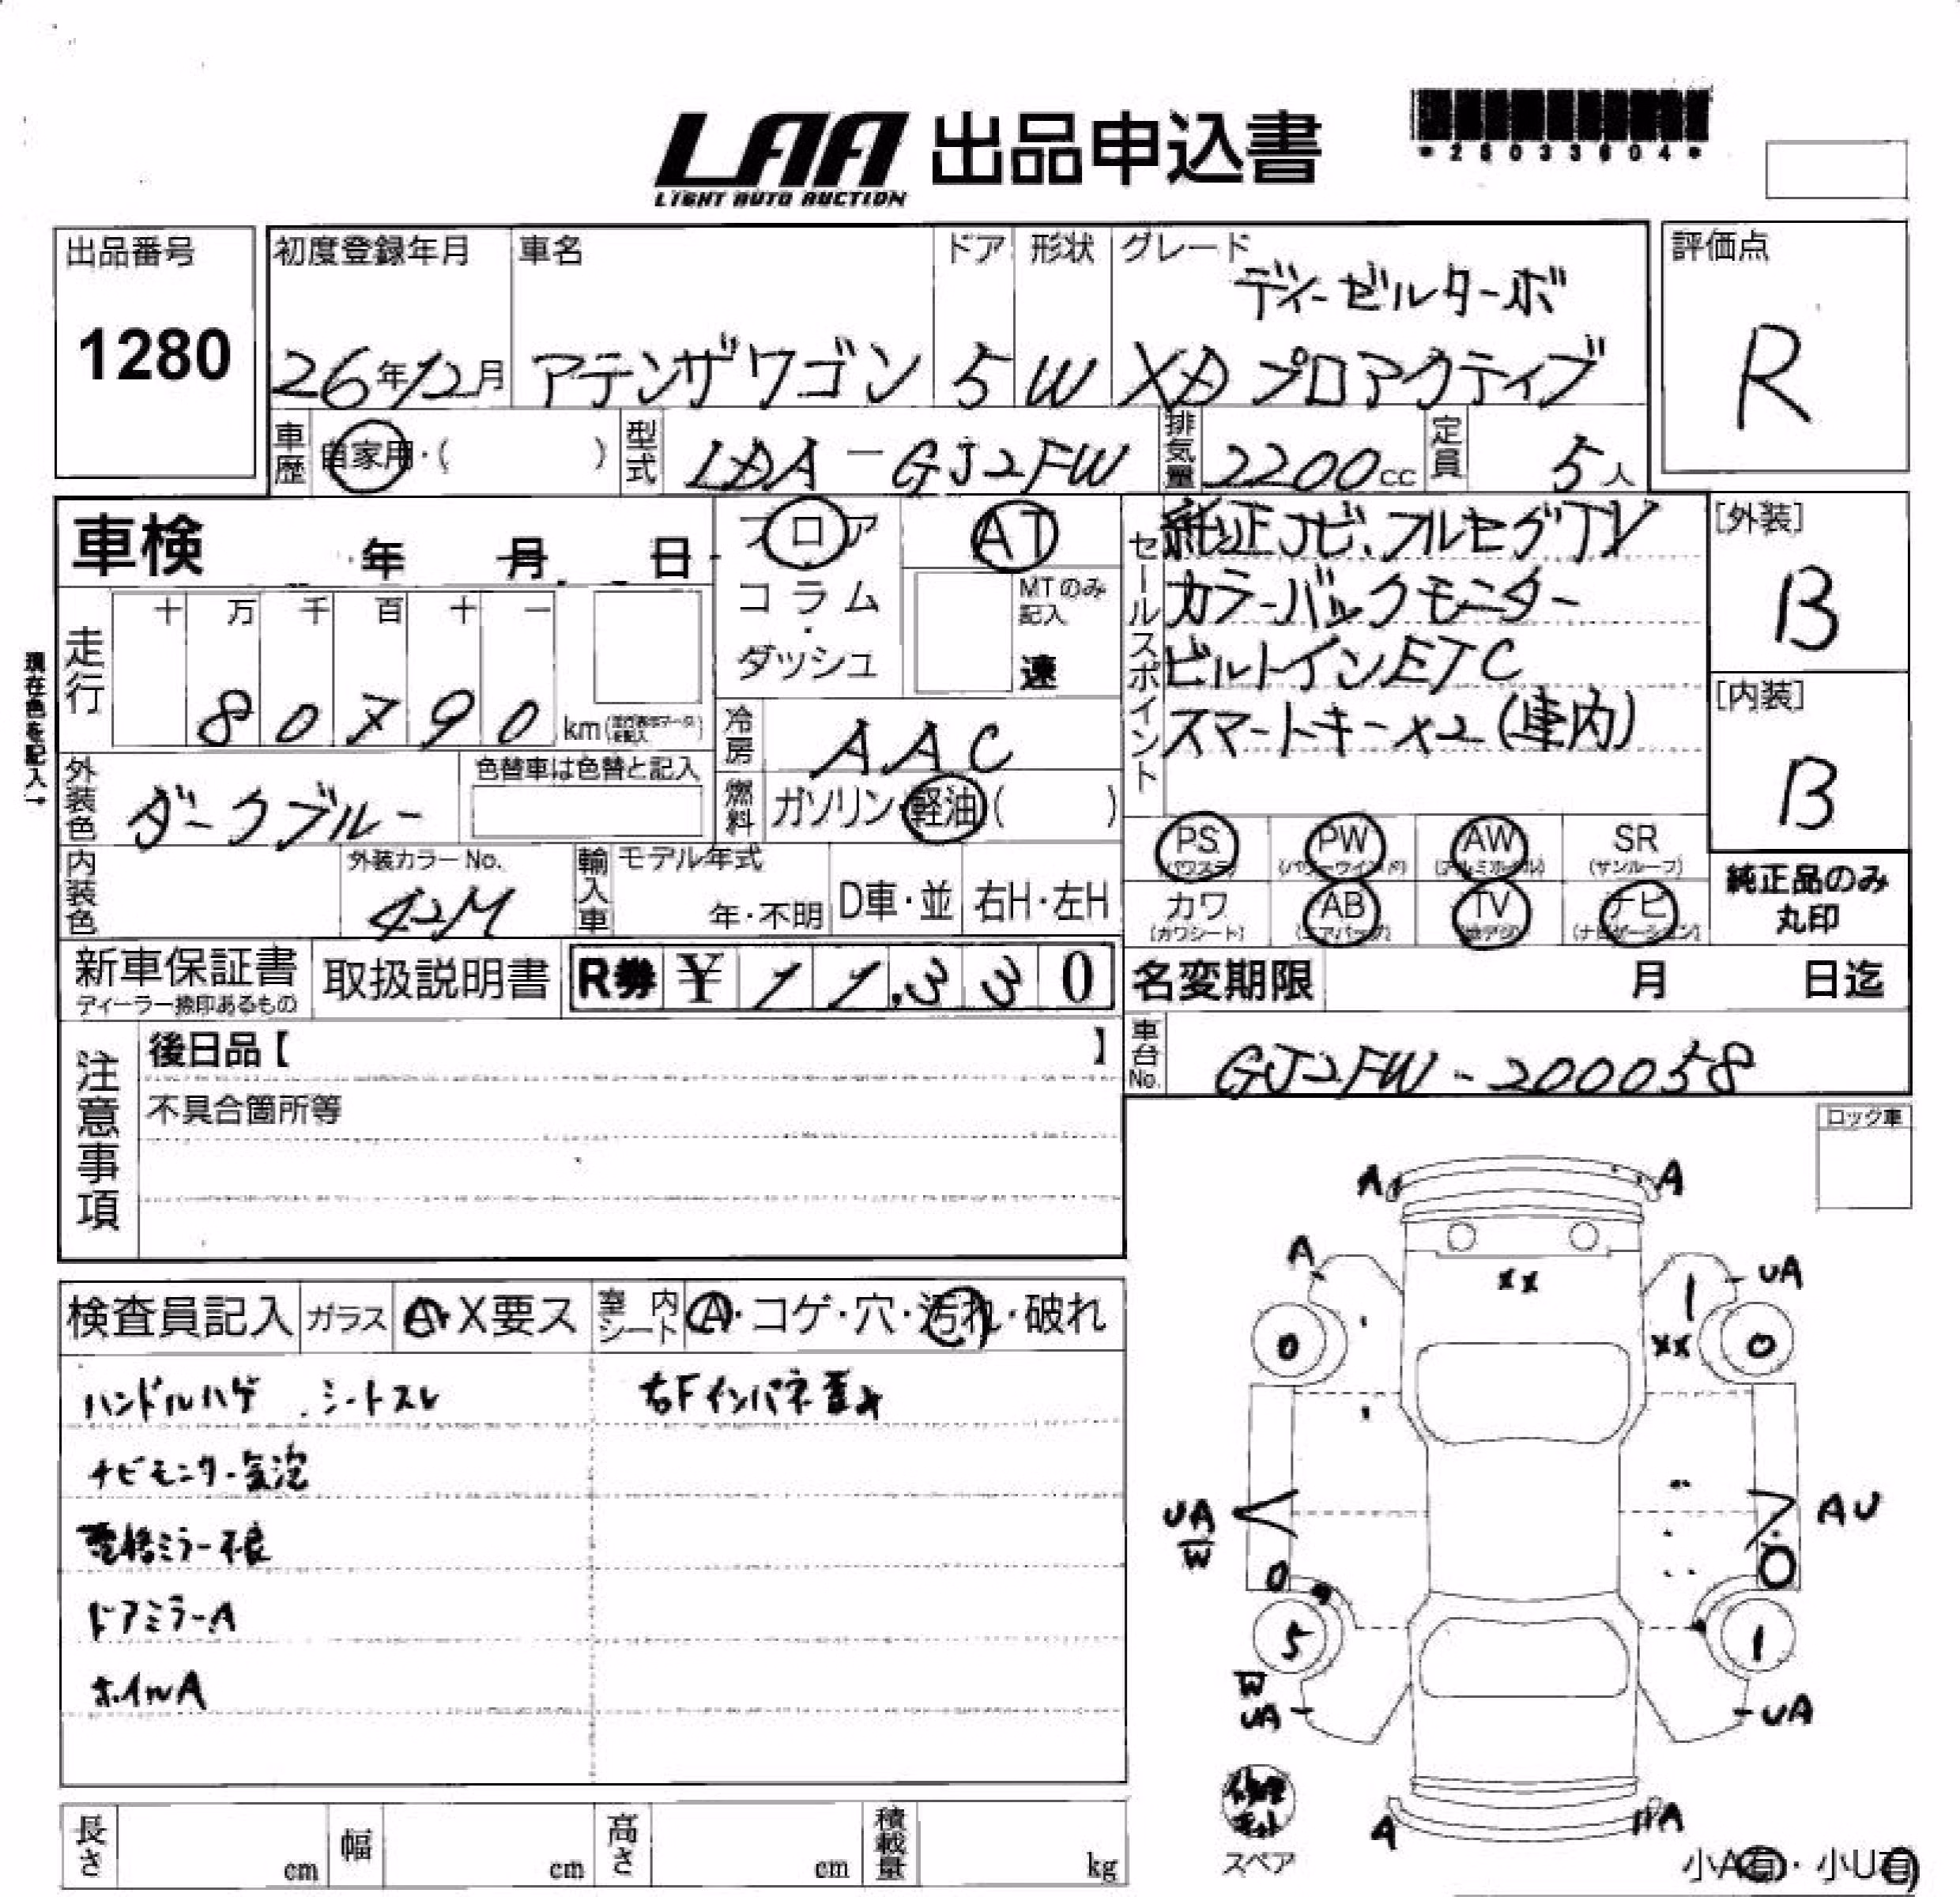 LAA 出品申込書
LIGHT AUTO AUCTION
*25033604*
出品番号
1280
初度登録年月
26年12月
車名
アテンザワゴン
ドア
5
形状
W
グレード
ディーゼルターボ
XD プロアクティブ
評価点
R
車歴
自家用・( )
型式
LDA-GJ2FW
排気量
2200cc
定員
5人
車検 年 月 日
フロア
コラム
・
ダッシュ
AT
MTのみ記入
速
セールスポイント
純正ナビ、フルセグTV
カラーバックモニター
ビルトインETC
スマートキー×2(車内)
[外装]
B
[内装]
B
現在色を記入→
走行
十 万 千 百 十 一
8 0 7 9 0 km
冷房
AAC
外装色
ダークブルー
色替車は色替と記入
燃料
ガソリン・軽油( )
PS
(パワステ)
PW
(パワーウインド)
AW
(アルミホイル)
SR
(サンルーフ)
カワ
(カワシート)
AB
(エアバック)
TV
(地デジ)
ナビ
(ナビゲーション)
純正品のみ
丸印
内装色
外装カラーNo.
42M
輸入車
モデル年式
年・不明
D車・並
右H・左H
新車保証書
ディーラー捺印あるもの
取扱説明書
R券 ¥ 1 1,3 3 0
名変期限 月 日迄
車台No.
GJ2FW-200058
注意事項
後日品【 】
不具合箇所等
ロック車
検査員記入
ガラス
A・X要ス
室内シート
A・コゲ・穴・汚れ・破れ
ハンドルハゲ、シートスレ
右Fインパネ歪み
ナビモニター気泡
電格ミラー不良
ドアミラーA
ホイルA
A A
A
UA
XX
XX
0 0
UA
W
AU
0
5 1
W
UA
UA
修理キット
スペア
A
A
小A有・小U有
長さ cm
幅 cm
高さ cm
積載量 kg